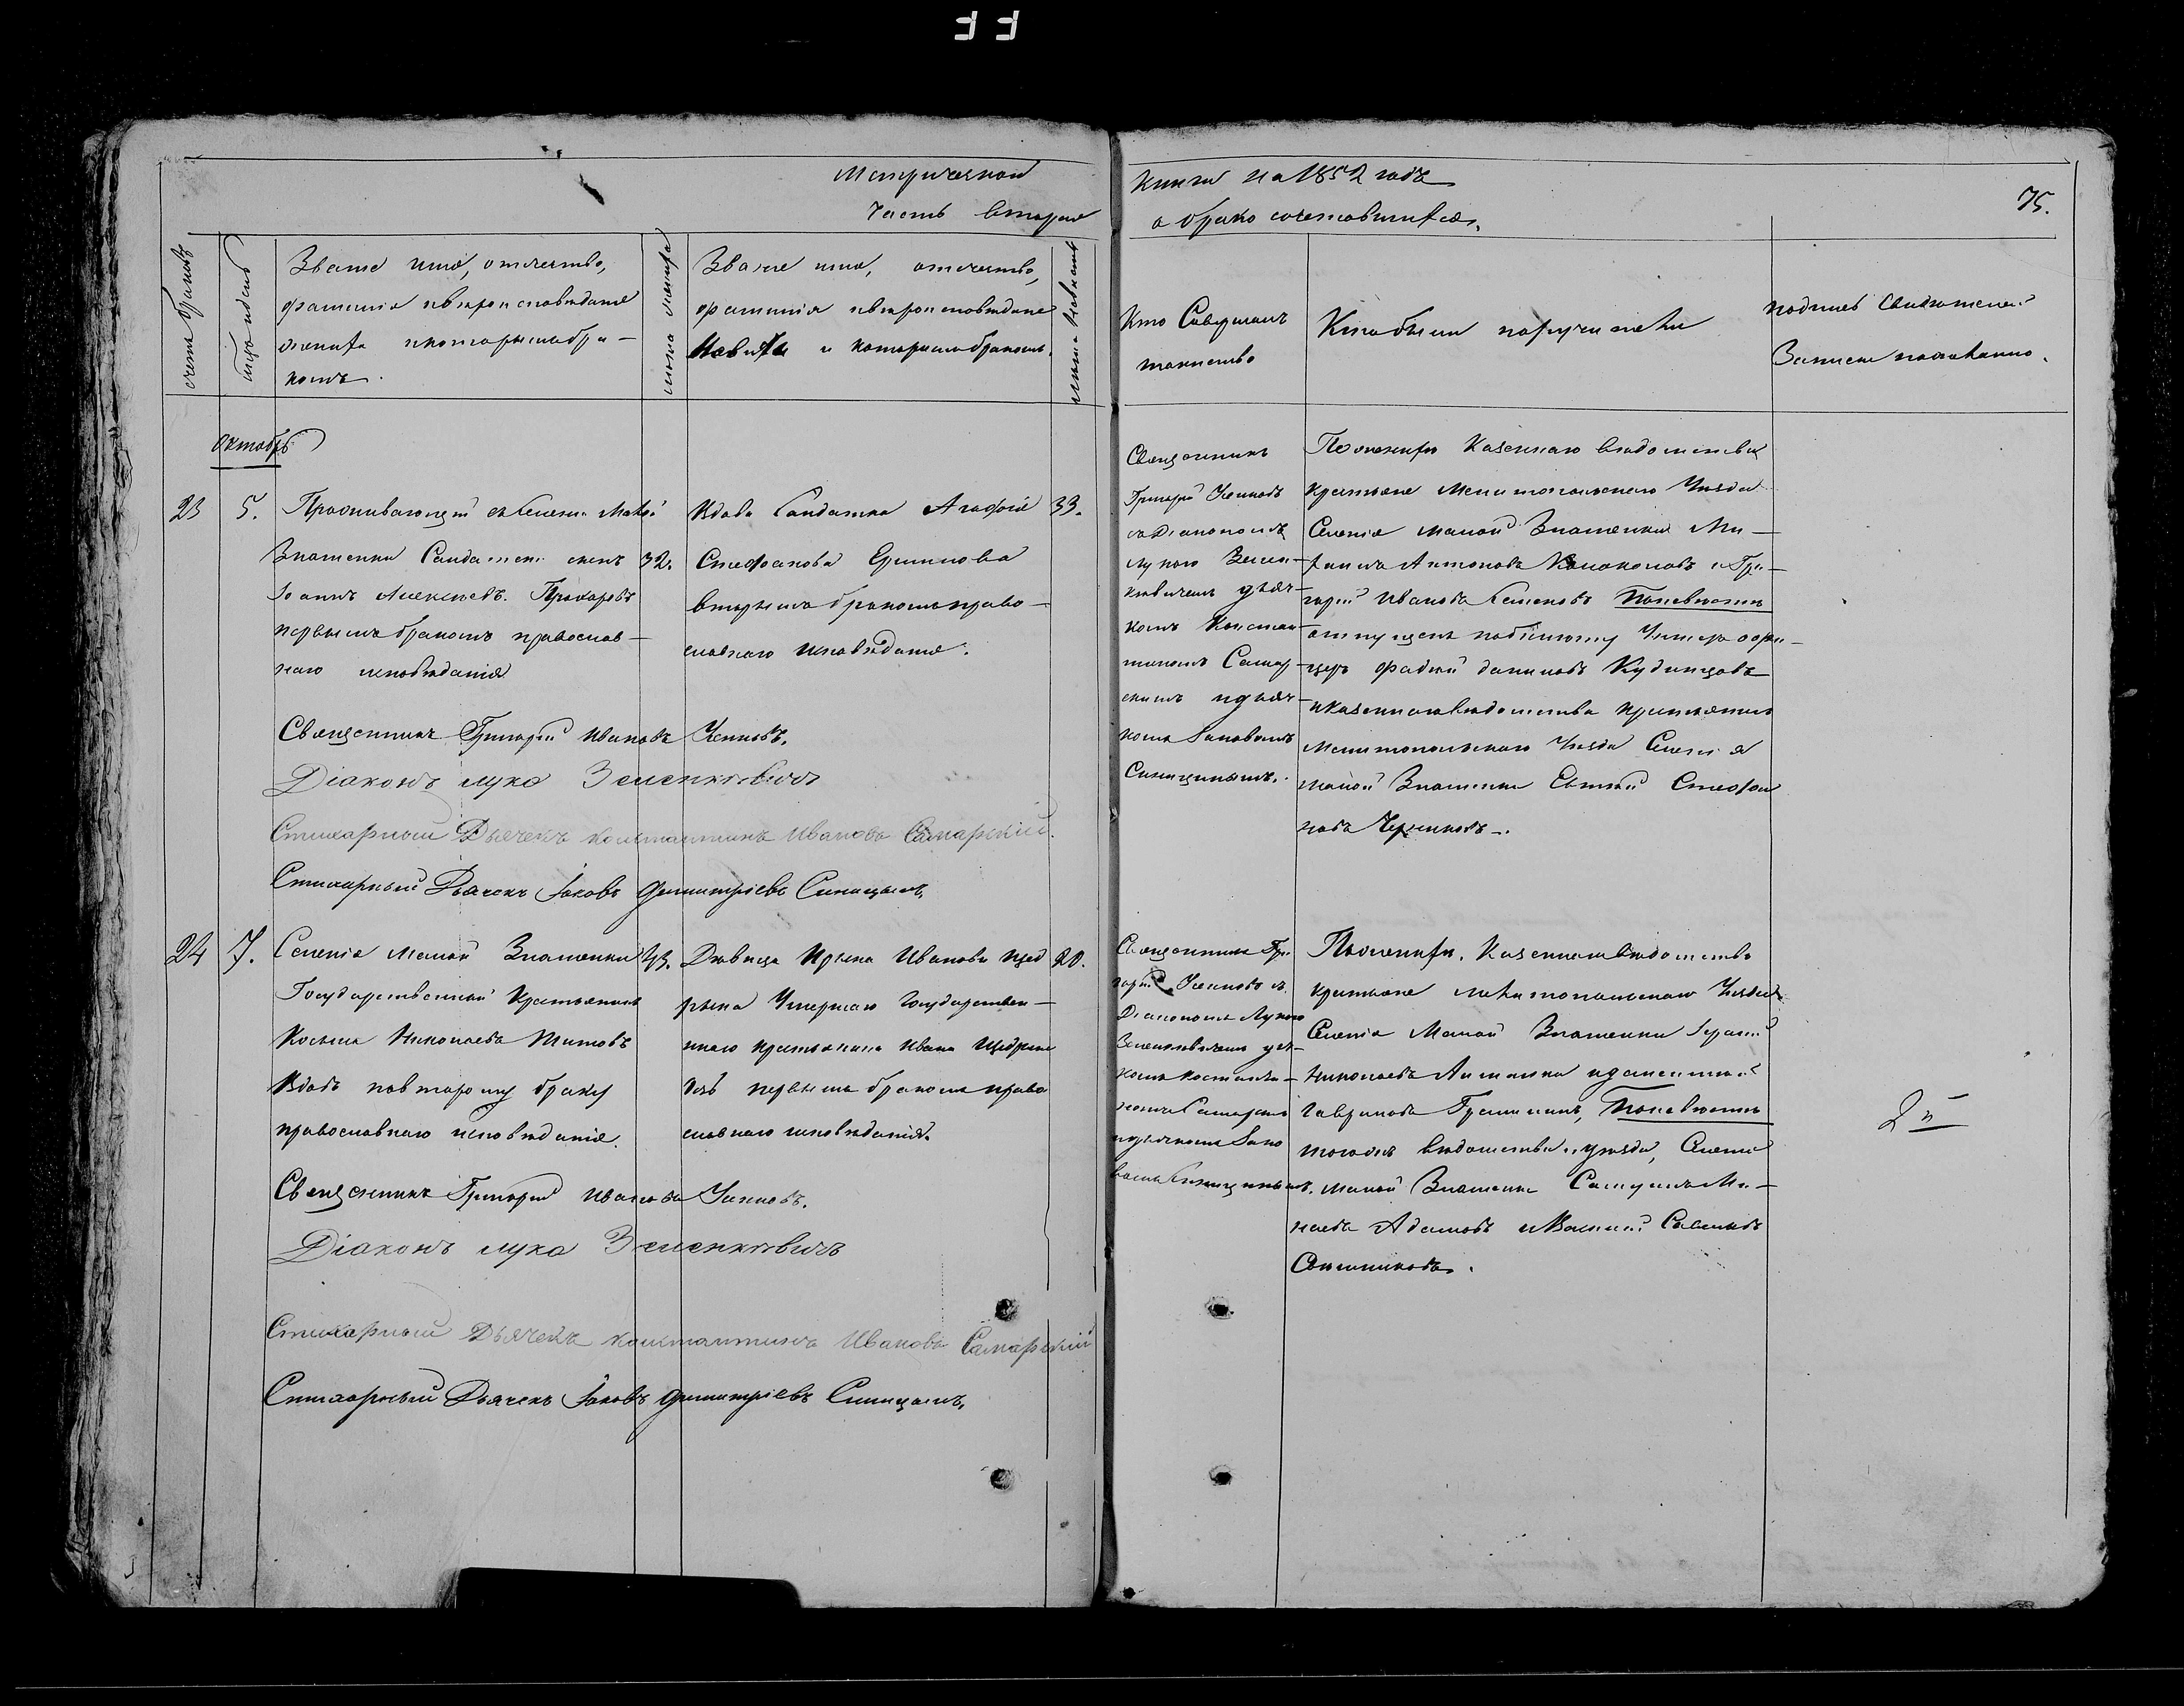 Метрической
Часть вторая
книги на 1852 годъ
о брако сочетавшихся.
75.
счетъ браковъ
Званіе имя, отчество,
фамилія и вероисповѣданіе
жениха и которымъ бра-
комъ.
лѣта жениха
Званіе имя, отчество,
фамилія и вероисповѣданіе
Невѣсты и которымъ бракомъ.
лѣта невѣсты
Кто Совершалъ
таинство
Кто были поручители
подпись свидѣтелей
Записи по желанію.
Октябрь
23
5.
Проживающій въ Селеніи Малой
Знаменки Солдатскій сынъ
Іоаннъ Алексѣевъ Прохоровъ
первымъ бракомъ православ-
наго исповѣданія
32.
Вдова Солдатка Агафія
Стефанова
вторымъ бракомъ право-
славнаго исповѣданія.
33.
Священникъ
Григорій
съ Діакономъ
Лукою Зелен-
кевичемъ дьяч-
комъ Констан-
тиномъ Самар-
скимъ и дьяч-
комъ Іаковомъ
Синицинымъ.
По женихѣ Казеннаго вѣдомства
Крестьяне Мелитопольскаго Уѣзда
Селенія малой Знаменки Ми-
хаилъ Антоновъ и Гри-
горій Ивановъ Семеновъ По невѣстѣ
Унтеръ офи-
церъ Фадѣй Даниловъ Кудинцовъ
и Казеннаго вѣдомства крестьянинъ
Мелитопольскаго Уѣзда Селенія
малой Знаменки Стефа
новъ
Священникъ Григорій Ивановъ
Діаконъ Лука Зеленкевичъ
Стихарный Дьячекъ Константинъ Ивановъ Самарскій.
Стихарный Дьячекъ Іаковъ Димитріевъ Синицынъ.
24
7.
Селенія Малой Знаменки
Государственный Крестьянинъ
Косьма Николаевъ Титовъ
Вдовъ по второму браку
православнаго исповѣданія.
43.
Дѣвица Ирина Иванова Щед
рина Умершаго Государствен-
ннаго крестьянина Ивана Щедрина
дочь первымъ бракомъ право
славнаго исповѣданія.
20.
Священникъ Гри-
горій съ
Діакономъ Лукою
Зеленкевичемъ дьяч-
комъ Константи-
номъ Самарскимъ
и дьячкомъ Іако
вомъ Синицинымъ.
По женихѣ. Казеннаго вѣдомства
крестьяне мелитопольскаго Уѣзда
Селенія Малой Знаменки
Николаевъ
Гавриловъ По невѣстѣ
того же вѣдомства и уѣзда, Селенія
малой Знаменки Самуилъ Ми-
наевъ Адамовъ и Василій Савельевъ
2й
Священникъ Григорій Ивановъ
Діаконъ Лука Зеленкевичъ
Стихарный Дьячекъ Константинъ Ивановъ Самарскій
Стихарный Дьячекъ Іаковъ Димитріевъ Синицынъ.